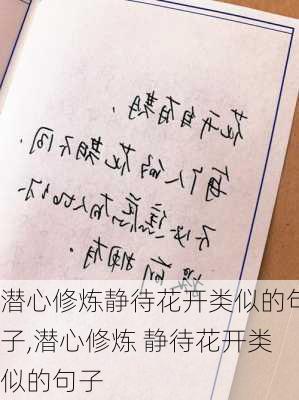 花开自有期，
每个人的花期不同，
不必焦虑有人比你
提前拥有。
潜心修炼静待花开类似的句
子,潜心修炼 静待花开类
似的句子